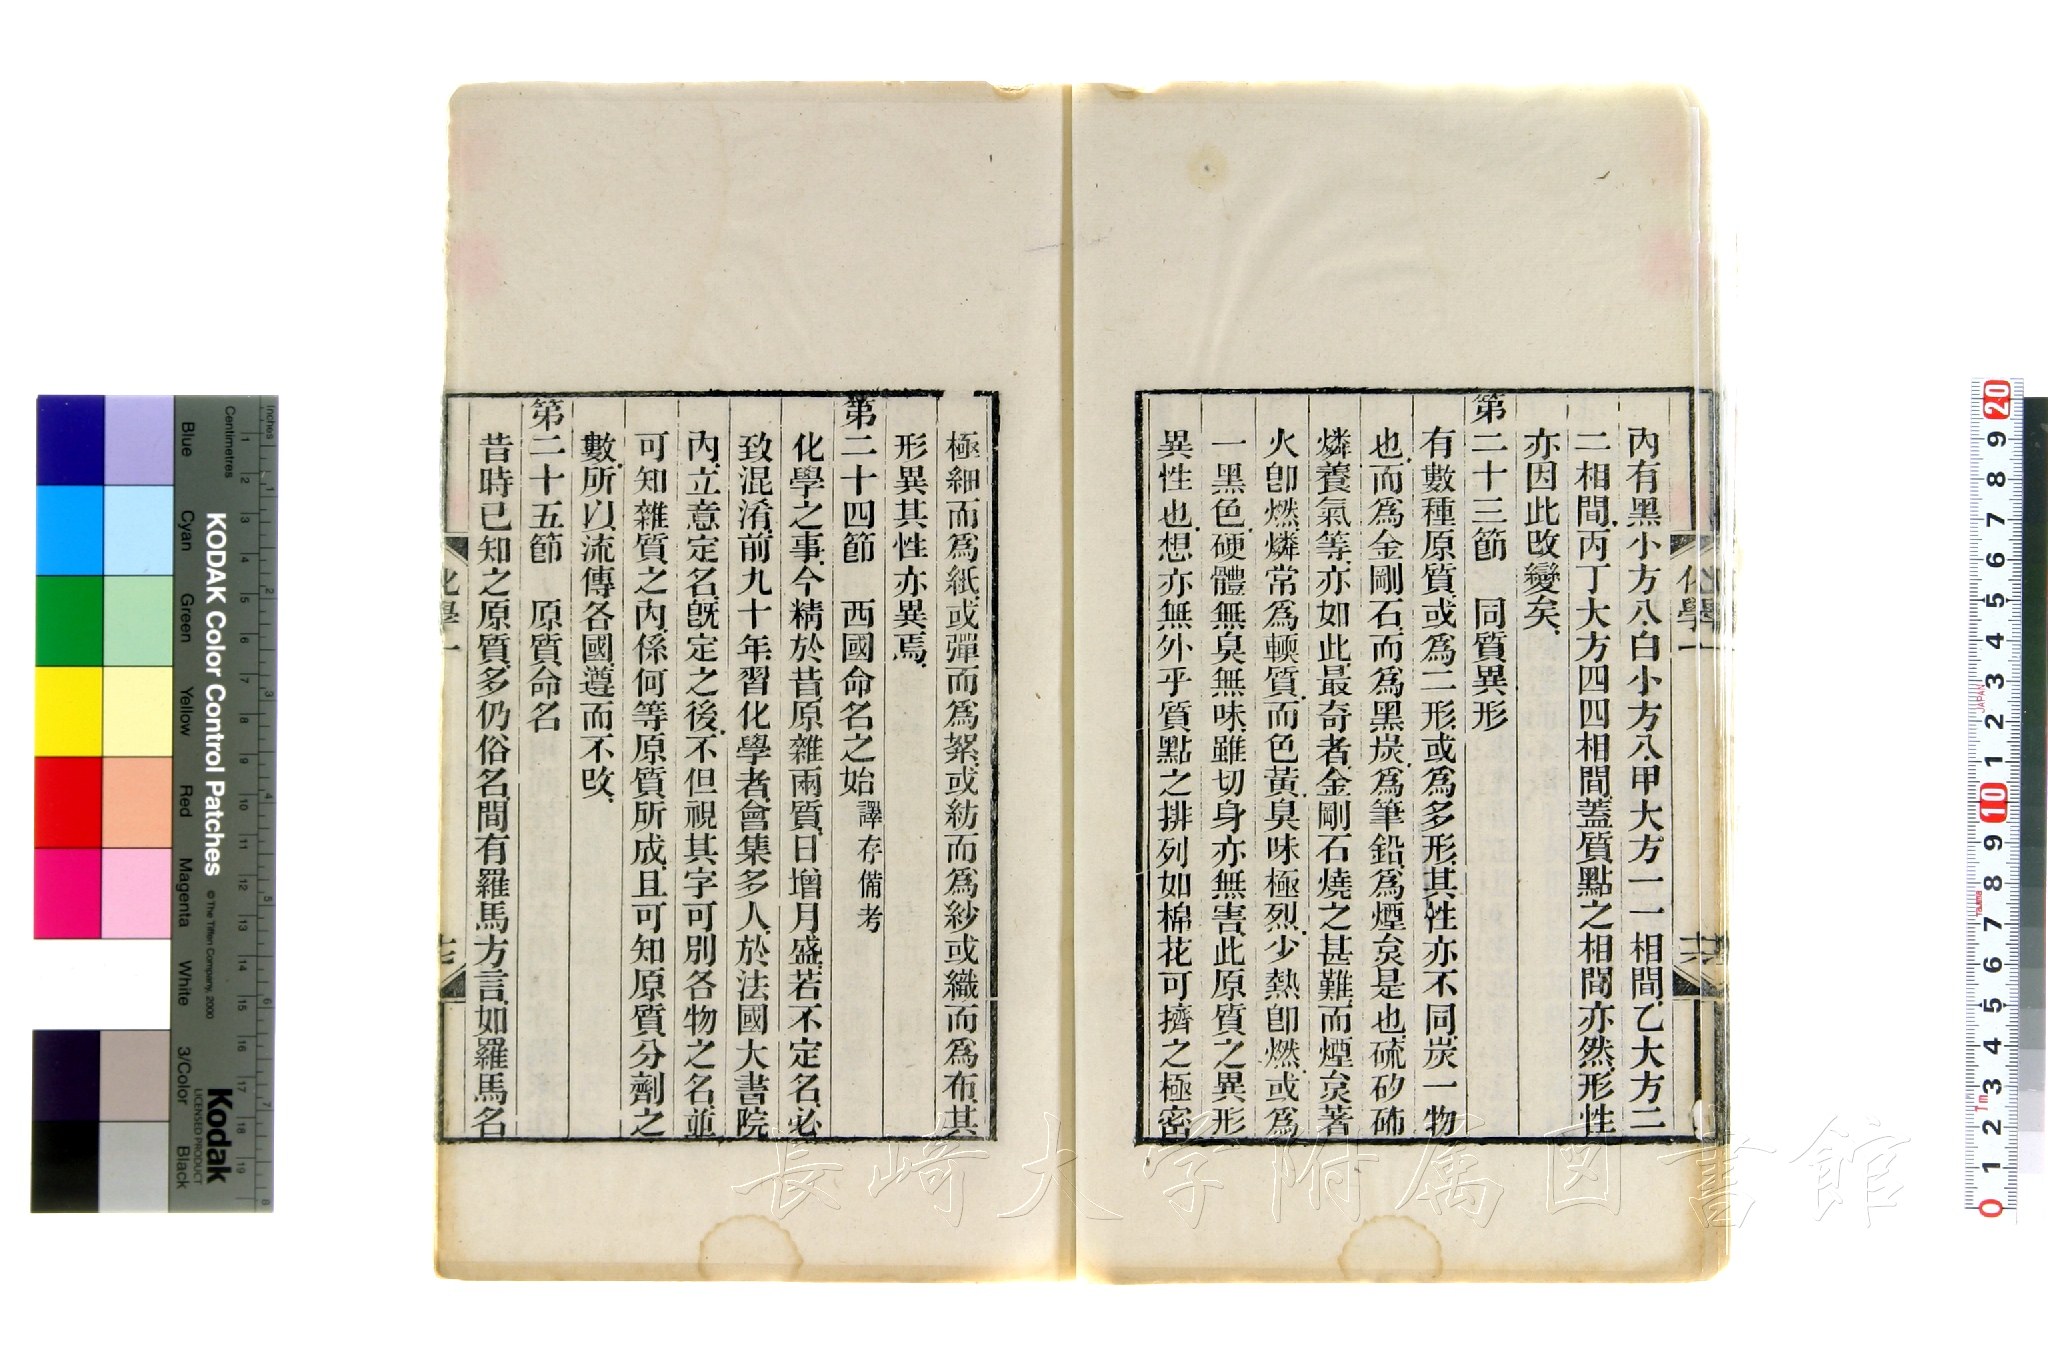 內有黑小方八、白小方八、甲大方一一相間、乙大方二
二相間、丙丁大方四四相間、蓋質點之相間亦然、形性
亦因此改變矣、
第二十三節　同質異形
有數種原質、或爲二形或爲多形、其性亦不同、炭一物
也、而爲金剛石、而爲黑炭、爲筆鉛、爲煙炱是也、硫矽砷
燐養氣等、亦如此、最奇者、金剛石燒之甚難、而煙炱著
火卽燃、燐常爲輭質、而色黃、臭味極烈、少熱卽燃、或爲
一黑色、硬體無臭無味、雖切身亦無害、此原質之異形
異性也、想亦無外乎質點之排列、如棉花可擠之極密
化學一
十六
極細而爲紙、或彈而爲絮、或紡而爲紗、或織而爲布、其
形異其性亦異焉、
第二十四節　西國命名之始 譯存備考
化學之事、今精於昔、原雜兩質、日增月盛、若不定名、必
致混淆、前九十年、習化學者、會集多人、於法國大書院
內、立意定名、旣定之後、不但視其字可別各物之名、並
可知雜質之內、係何等原質所成、且可知原質分劑之
數、所以流傳各國、遵而不改、
第二十五節　原質命名
昔時已知之原質、多仍俗名、間有羅馬方言、如羅馬名
化學一
KODAK Color Control Patches
© The Tiffen Company, 2000
Kodak
LICENSED PRODUCT
Inches
Centimetres
Blue
Cyan
Green
Yellow
Red
Magenta
White
3/Color
Black
1 2 3 4 5 6 7 8
1 2 3 4 5 6 7 8 9 10 11 12 13 14 15 16 17 18 19
20 9 8 7 6 5 4 3 2 1 10 9 8 7 6 5 4 3 2 1 0
JAPAN
長崎大学附属図書館